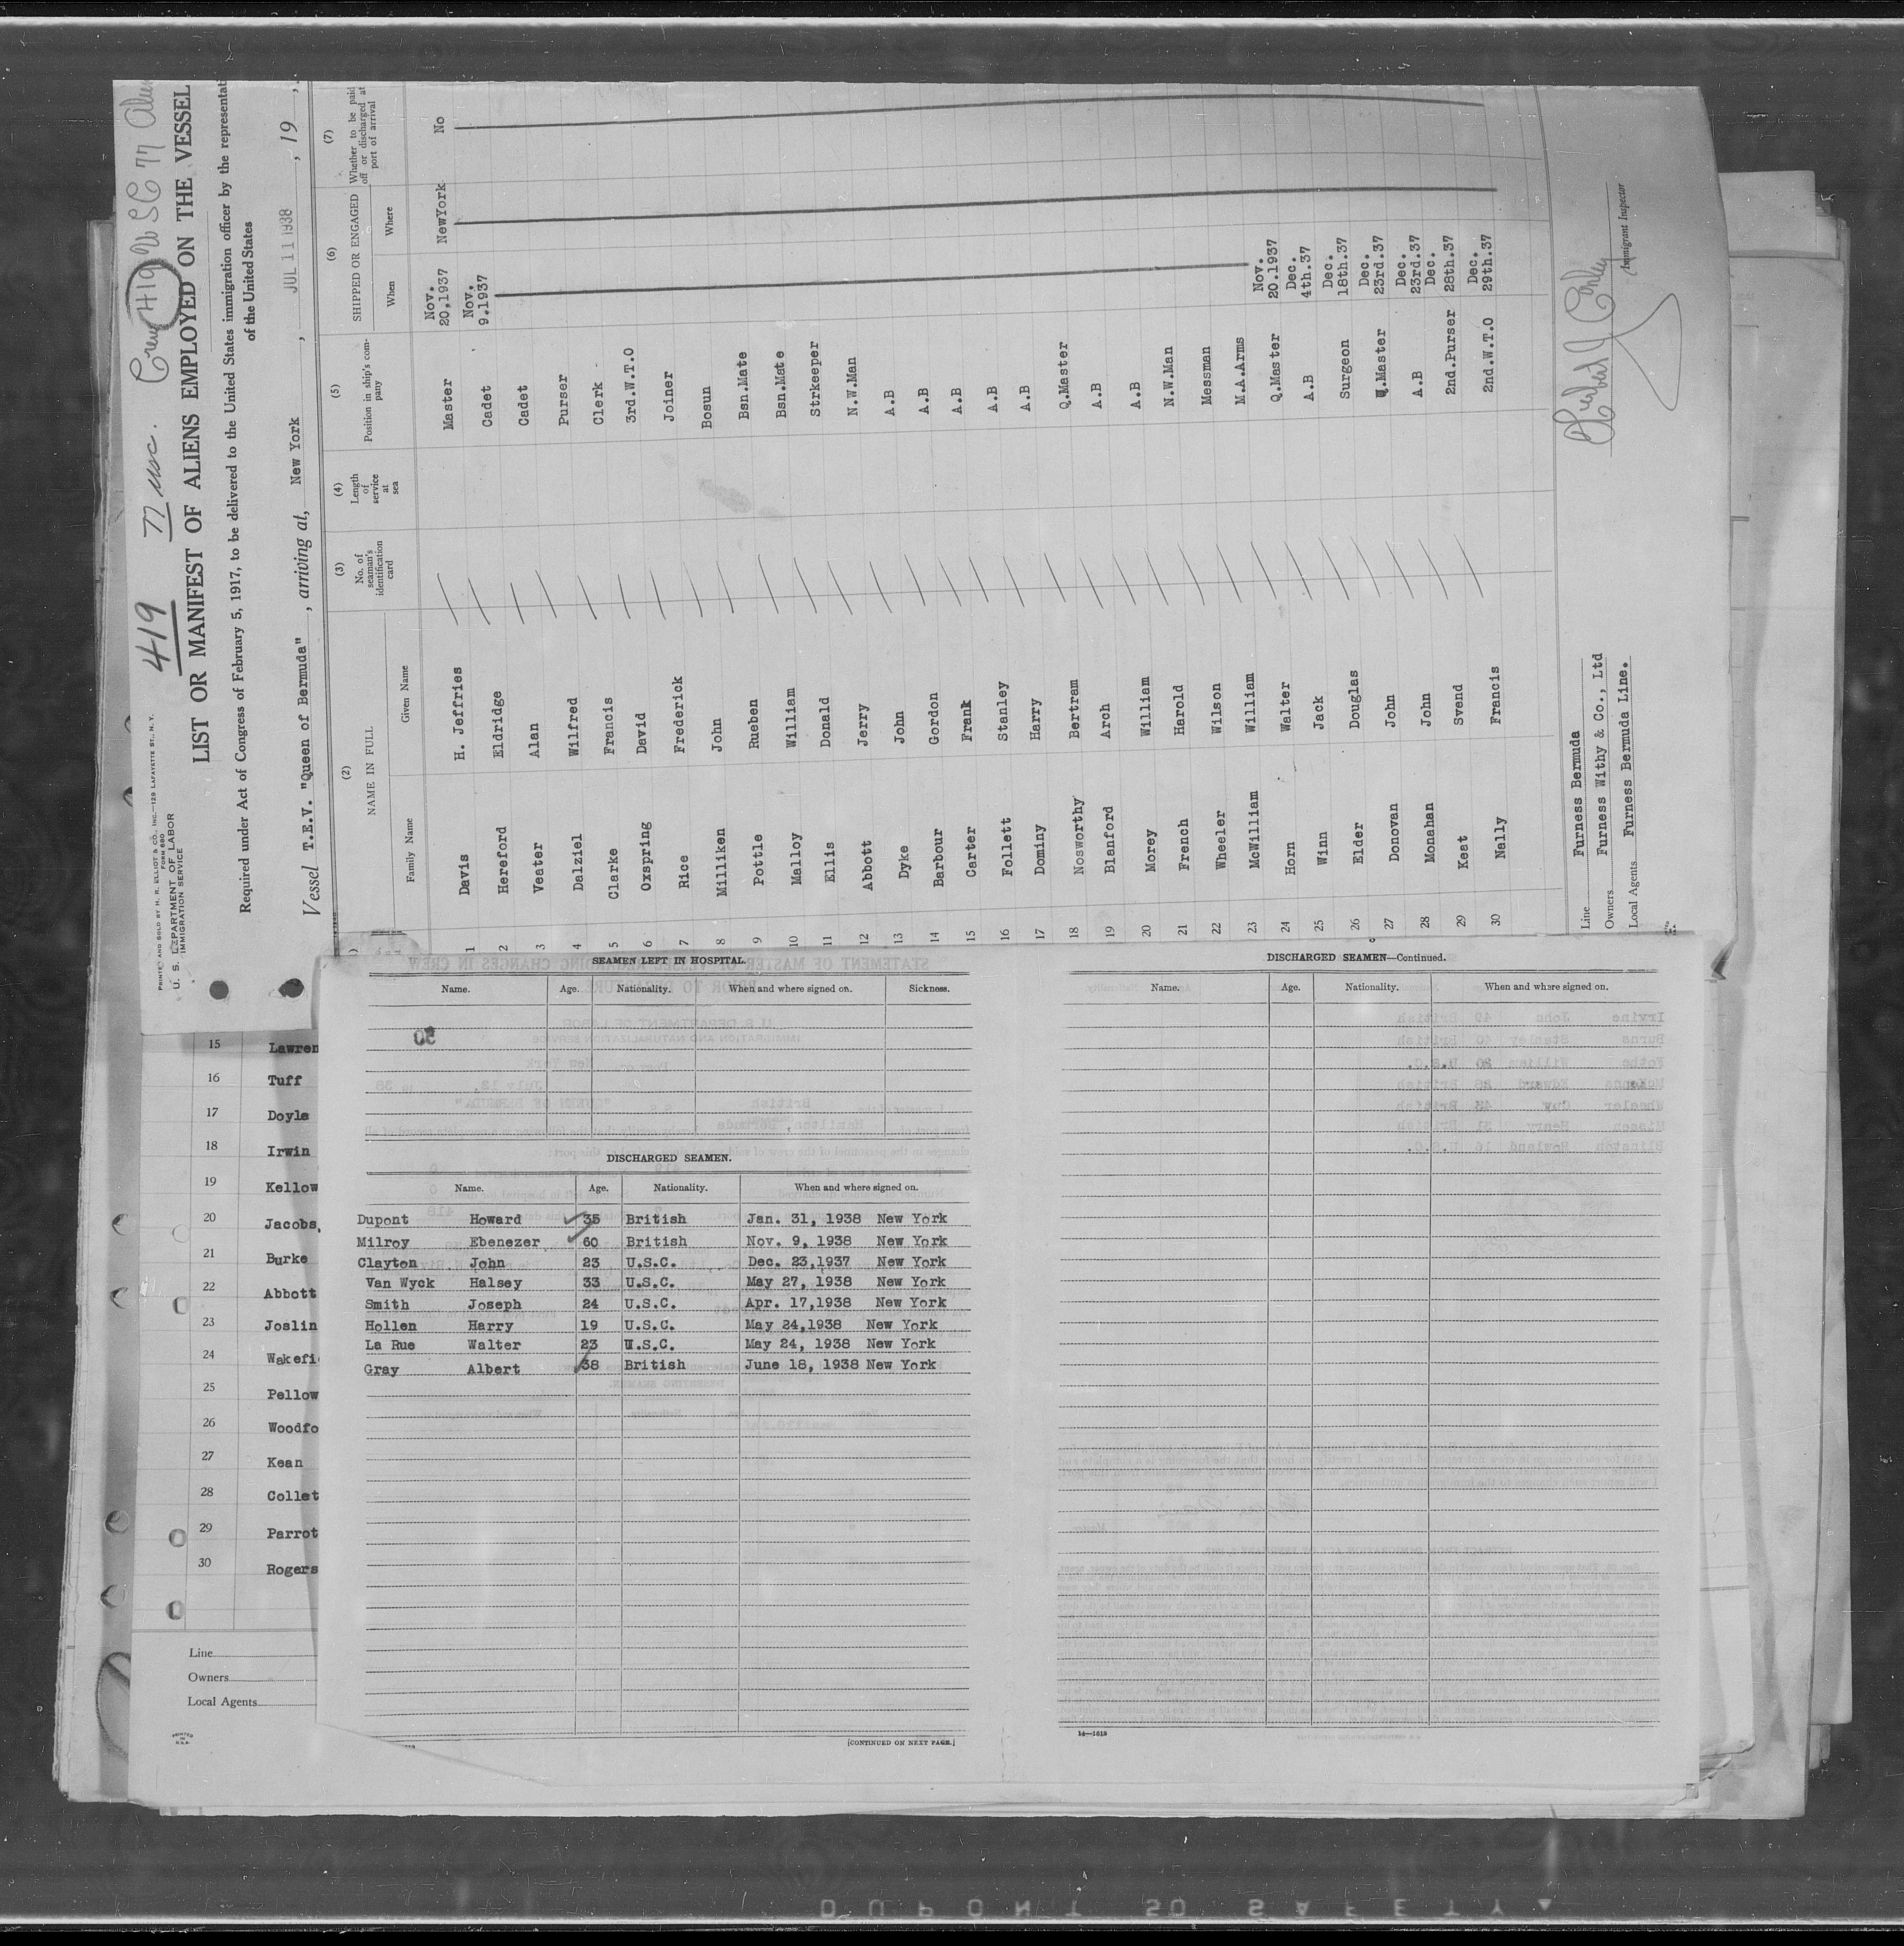 PRINTED AND SOLD BY H. R. ELLIOT & CO., INC.—129 LAFAYETTE ST., N.Y.
FORM 680
U. S. DEPARTMENT OF LABOR
IMMIGRATION SERVICE
419 77 usc. Crew 419 W SC 77
LIST OR MANIFEST OF ALIENS EMPLOYED ON THE VESSEL
Required under Act of Congress of February 5, 1917, to be delivered to the United States immigration officer by the representat
of the United States
Vessel T.E.V. "Queen of Bermuda", arriving at, New York, JUL 11 1938, 19
(2) (3) (4) (5) (6) (7)
NAME IN FULL No. of seaman's identification card Length of service at sea Position in ship's company SHIPPED OR ENGAGED Whether to be paid off or discharged at port of arrival
Family Name Given Name When Where
Davis H. Jeffries Master Nov. 20,1937 NewYork No
1 Hereford Eldridge Cadet Nov, 9.1937
2 Veater Alan Cadet
3 Dalziel Wilfred Purser
4 Clarke Francis Clerk
5 Oxspring David 3rd.W.T.O
6 Rice Frederick Joiner
7 Milliken John Bosun
8 Pottle Rueben Bsn.Mate
9 Malloy William Bsn.Mate
10 Ellis Donald Strkeeper
11 Abbott Jerry N.W.Man
12 Dyke John A.B
13 Barbour Gordon A.B
14 Carter Frank A.B
15 Follett Stanley A.B
16 Dominy Harry A.B
17 Nosworthy Bertram Q.Master
18 Blanford Arch A.B
19 Morey William A.B
20 French Harold N.W.Man
21 Wheeler Wilson Messman
22 McWilliam William M.A.Arms
23 Horn Walter Q.Master Nov. 20.1937
24 Winn Jack A.B Dec. 4th.37
25 Elder Douglas Surgeon Dec. 18th.37
26 Donovan John Q.Master Dec. 23rd.37
27 Monahan John A.B Dec. 23rd.37
28 Keat Svend 2nd.Purser Dec. 28th.37
29 Nally Francis 2nd.W.T.O Dec. 29th.37
30
Line Furness Bermuda
Owners Furness Withy & Co., Ltd
Local Agents Furness Bermuda Line.
Immigrant Inspector
15 Lawren
16 Tuff
17 Doyle
18 Irwin
19 Kellow
20 Jacobs,
21 Burke
22 Abbott
23 Joslin
24 Wakefi
25 Pellow
26 Woodfo
27 Kean
28 Collet
29 Parrot
30 Rogers
Line
Owners
Local Agents
PRINTED IN U.S.A.
SEAMEN LEFT IN HOSPITAL.
Name. Age. Nationality. When and where signed on. Sickness.
50
DISCHARGED SEAMEN.
Name. Age. Nationality. When and where signed on.
Dupont Howard 35 British Jan. 31, 1938 New York
Milroy Ebenezer 60 British Nov. 9, 1938 New York
Clayton John 23 U.S.C. Dec. 23,1937 New York
Van Wyck Halsey 33 U.S.C. May 27, 1938 New York
Smith Joseph 24 U.S.C. Apr. 17,1938 New York
Hollen Harry 19 U.S.C. May 24,1938 New York
La Rue Walter 23 U.S.C. May 24, 1938 New York
Gray Albert 38 British June 18, 1938 New York
[CONTINUED ON NEXT PAGE.]
DISCHARGED SEAMEN—Continued.
Name. Age. Nationality. When and where signed on.
14—1613
DUPONT 50 SAFETY